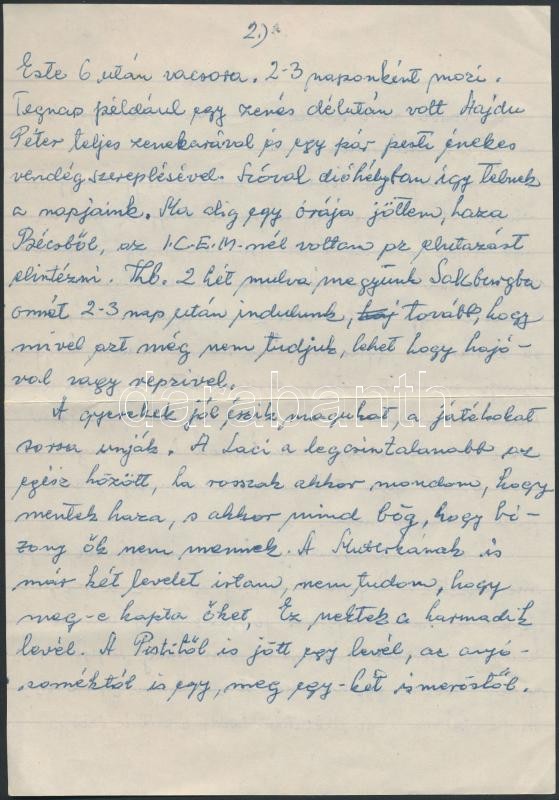 2.)
Este 6 után vacsora. 2-3 naponként mozi.
Tegnap például egy zenés délután volt Hajdu
Péter teljes zenekarával és egy pár pesti énekes
vendégszereplésével. Szóval dióhéjban így telnek
a napjaink. Ma alig egy órája jöttem, haza
Bécsből, az I.C.E.M-nél voltam az elutazást
elintézni. Kb. 2 hét mulva megyünk Salzburgba
onnét 2-3 nap után indulunk, tovább, hogy
mivel azt még nem tudjuk, lehet hogy hajó-
val vagy repzivel.
A gyerekek jól érzik magukat, a játékokat
sorra unják. A Laci a legcsintalanabb az
egész között, ha rosszak akkor mondom, hogy
mentek haza, s akkor mind bőg, hogy bi-
zony ők nem mennek. A is
már két levelet irtam, nem tudom, hogy
meg-e kapta őket, Ez nektek a harmadik
levél. A Pistitől is jött egy levél, az anyó-
soméktól is egy, meg egy-két ismerőstől.
darabanth